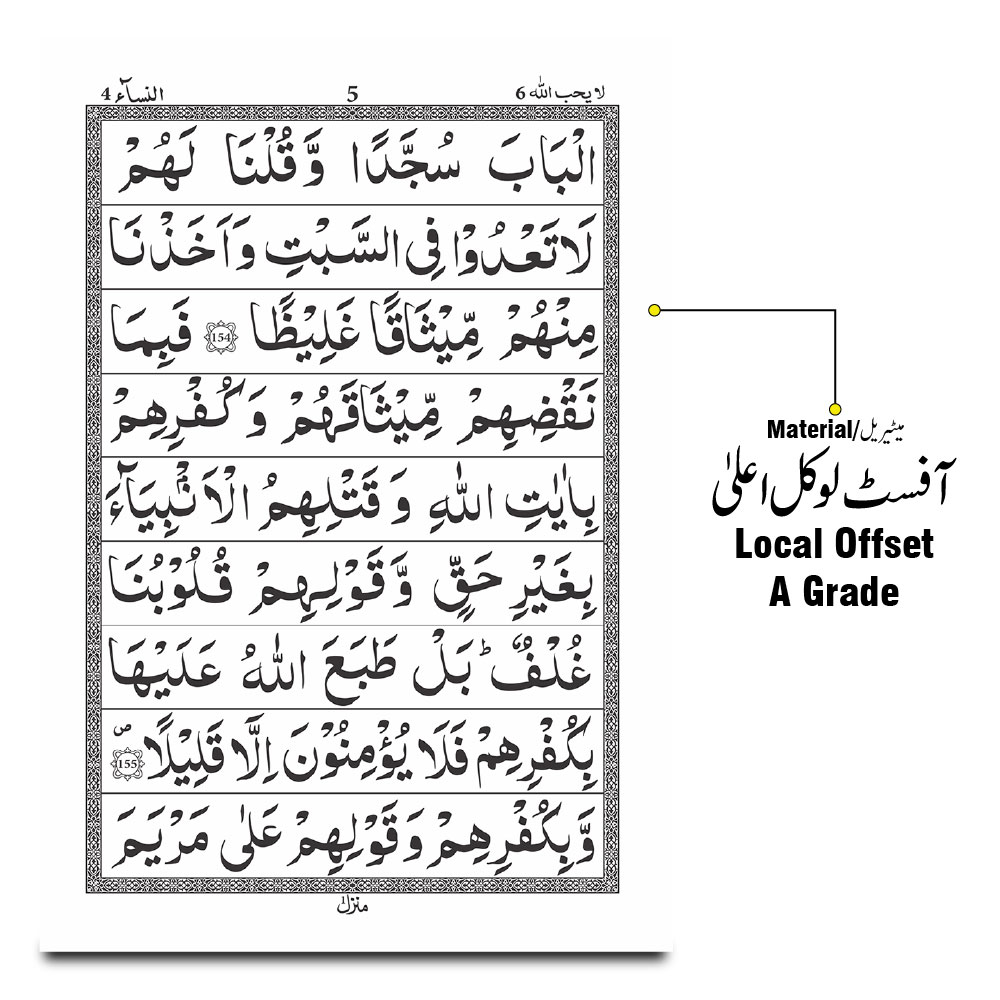 لا یحب اللہ 6
5
النسآء 4
الْبَابَ سُجَّدًا وَّقُلْنَا لَهُمْ
لَا تَعْدُوْا فِی السَّبْتِ وَاَخَذْنَا
مِنْهُمْ مِّیْثَاقًا غَلِیْظًا 154 فَبِمَا
نَقْضِهِمْ مِّیْثَاقَهُمْ وَكُفْرِهِمْ
بِاٰیٰتِ اللّٰهِ وَقَتْلِهِمُ الْاَنْۢبِیَآءَ
بِغَیْرِ حَقٍّ وَّقَوْلِهِمْ قُلُوْبُنَا
غُلْفٌ ؕ بَلْ طَبَعَ اللّٰهُ عَلَیْهَا
بِكُفْرِهِمْ فَلَا یُؤْمِنُوْنَ اِلَّا قَلِیْلًا 155 ۪
وَّبِكُفْرِهِمْ وَقَوْلِهِمْ عَلٰی مَرْیَمَ
منزل ۱
Material/میٹیریل
آفسٹ لوکل اعلیٰ
Local Offset
A Grade